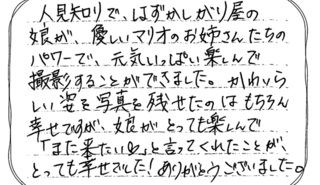 人見知りで、はずかしがり屋の
娘が、優しいマリオのお姉さんたちの
パワーで、元気いっぱい楽しんで
撮影することができました。かわいら
しい姿を写真を残せたのはもちろん
幸せですが、娘がとっても楽しんで
「また来たいね」と言ってくれたことが、
とっても幸せでした!ありがとうございました。